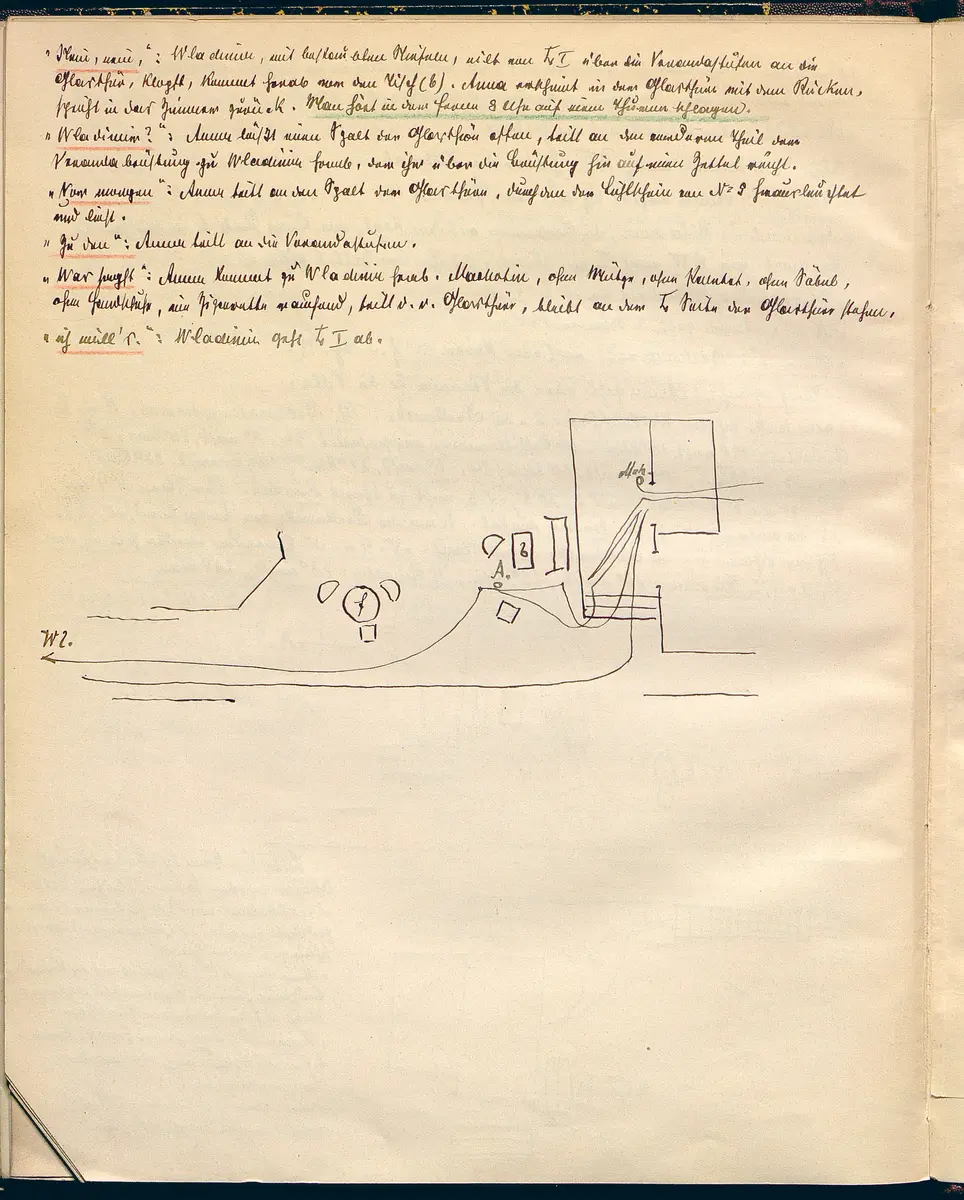 „Nein, nein,“: Wladimir, mit bestaubten Stiefeln, eilt von L I über die Verandastufen an die
Glasthür, klopft, kommt herab vor den Tisch (b). Anna erscheint in der Glasthür mit dem Rücken,
spricht in das Zimmer zurück. Man hört in der Ferne 8 Uhr auf einem Thurme schlagen.
„Wladimir?“: Anna läßt einen Spalt der Glasthür offen, tritt an den vorderen Theil der
Verandabrüstung zu Wladimir herab, der ihr über die Brüstung hin auf einen Zettel reicht.
„Vor morgen“: Anna tritt an den Spalt der Glasthüre, durch den der Lichtschein von No 8 herausleuchtet
und liest.
„Zu den“: Anna tritt an die Verandastufen.
„War sonst“: Anna kommt zu Wladimir herab. Machotin, ohne Mütze, ohne Paletot, ohne Säbel,
ohne Handschuhe, eine Zigarette rauchend, tritt i. d. Glasthür, bleibt an der L Seite der Glasthür stehen.
„ich will's.“: Wladimir geht L I ab.
Mach.
b
A.
f
Wl.